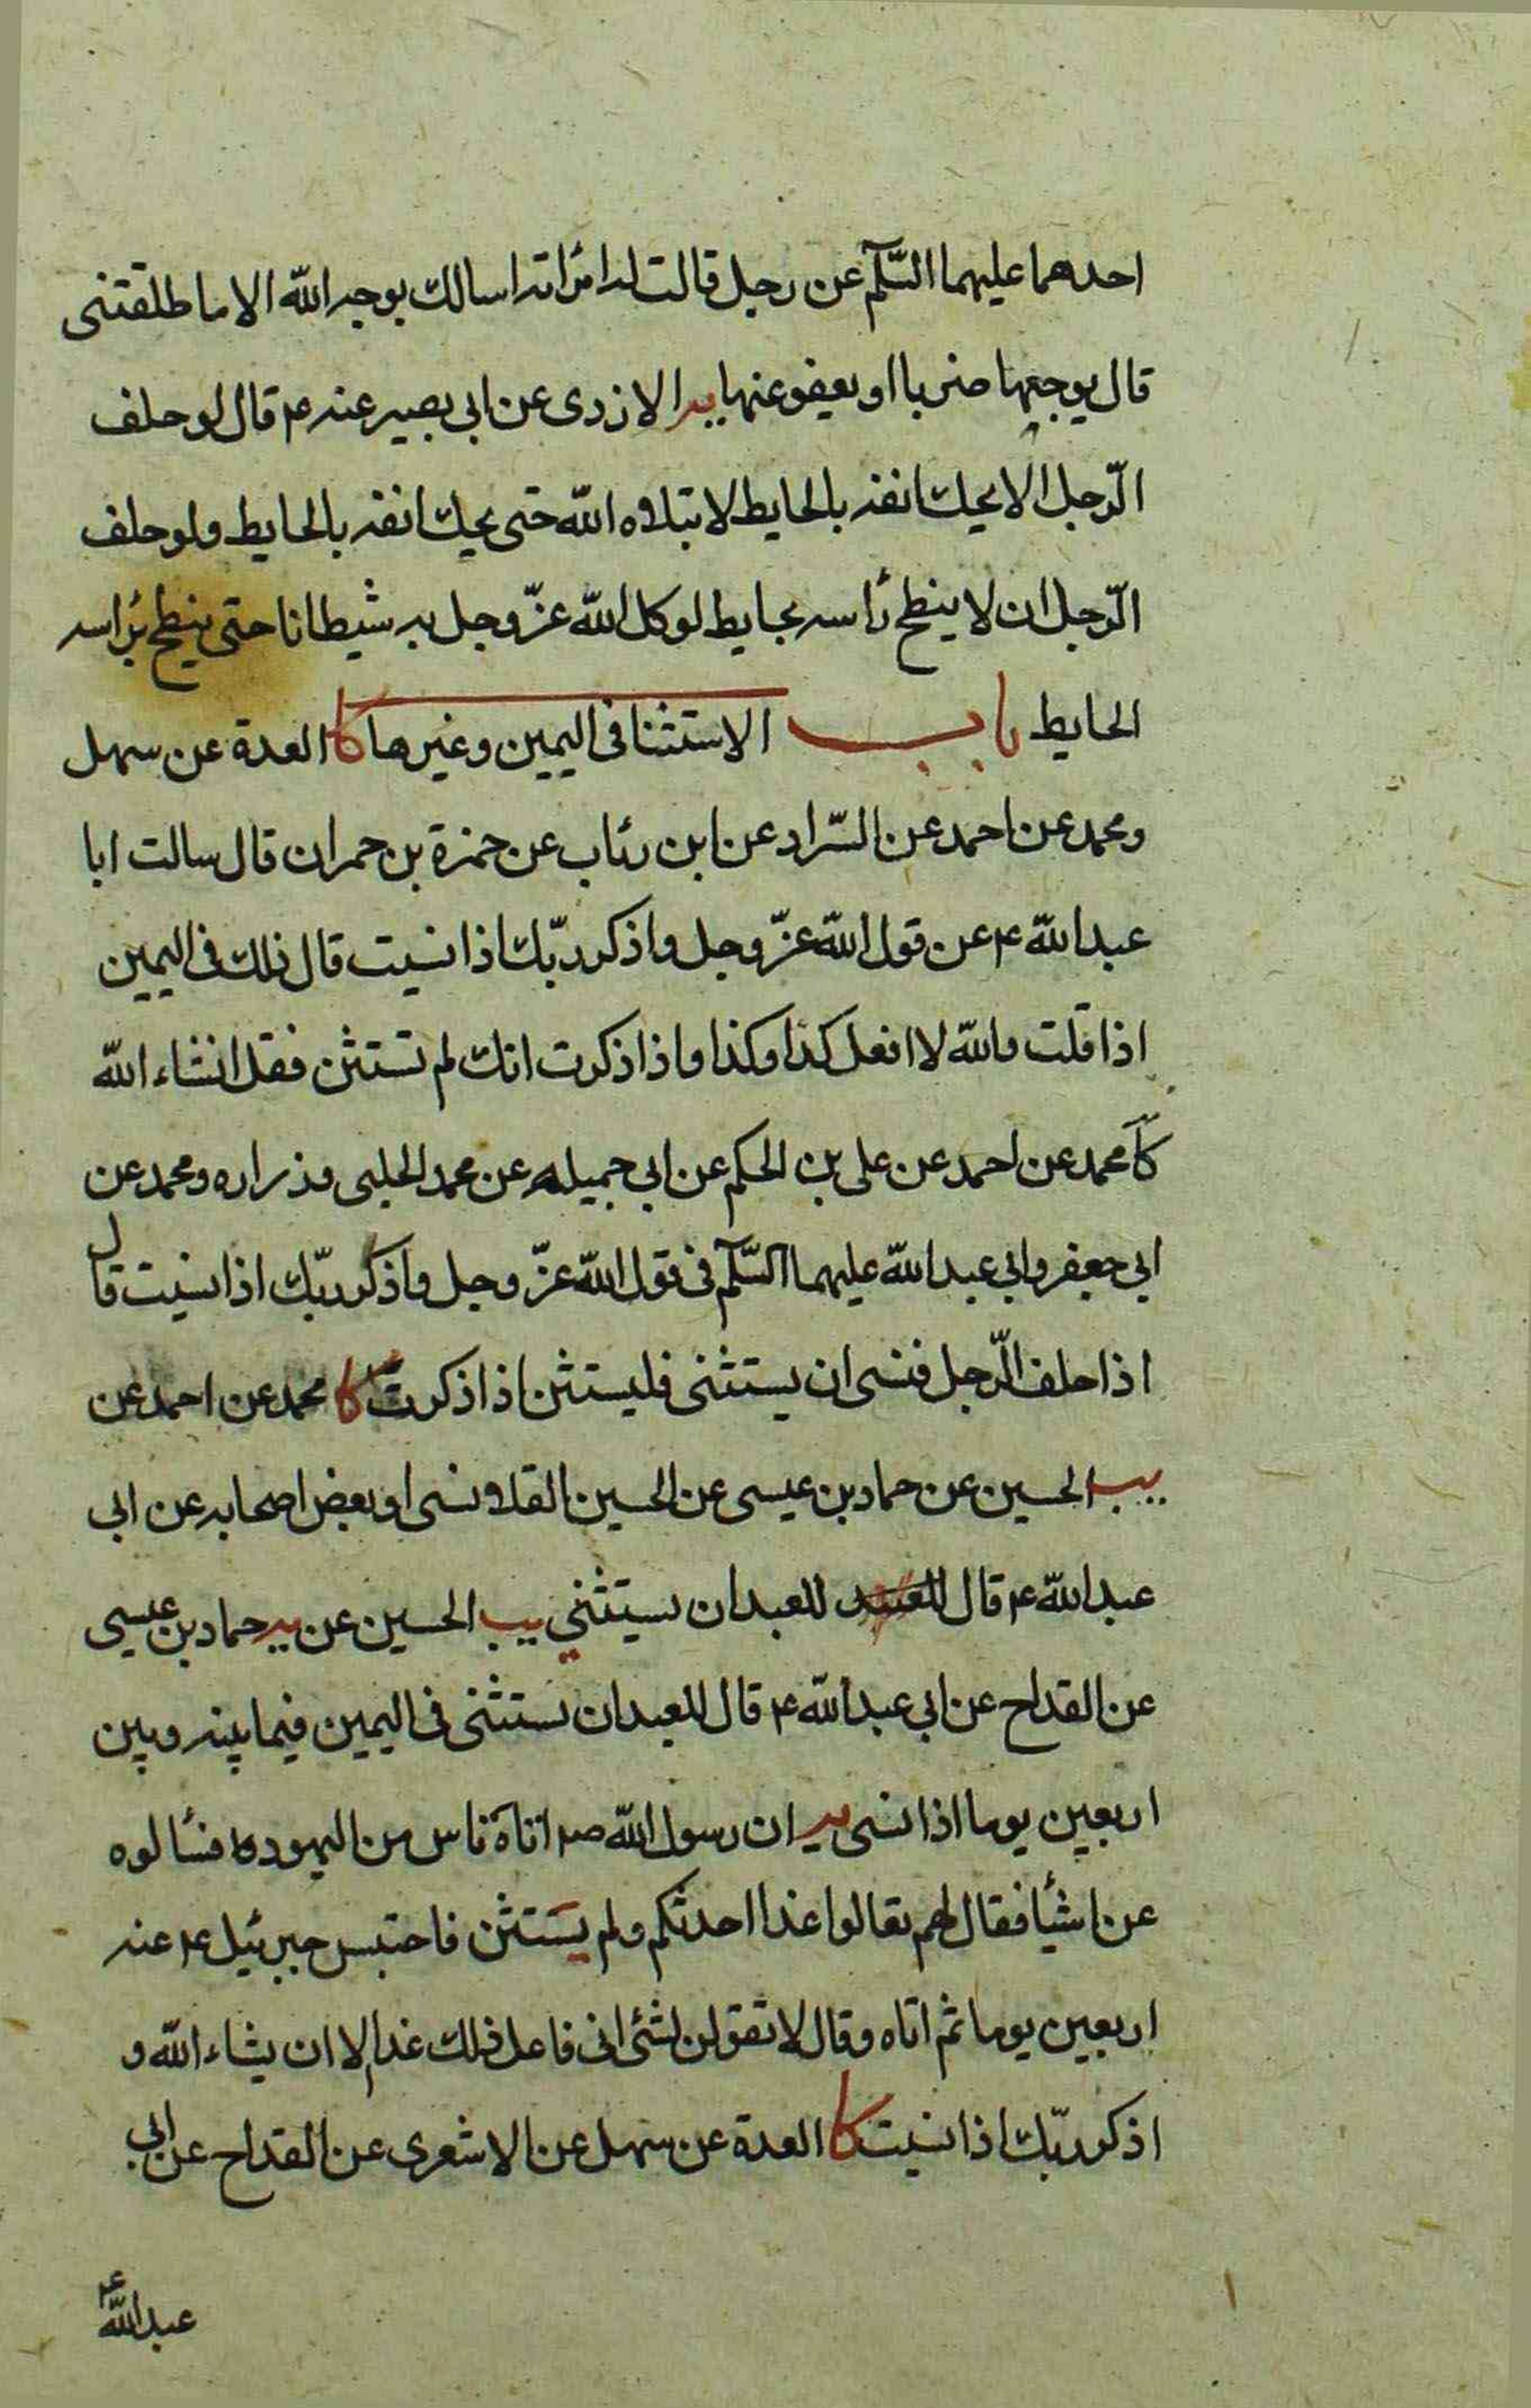 احدهما عليهما السّلم عن رجل قالت له امرأته اسالك بوجه الله الا ما طلقتنى
قال يوجعها ضربا او يعفو عنها يه الازدى عن ابى بصير عنه ع قال لو حلف
الرّجل الا يحك انفه بالحايط لابتلاه الله حتى يحك انفه بالحايط ولو حلف
الرّجل ان لا ينطح رأسه بحايط لوكل الله عزّ وجل به شيطانا حتى ينطح برأسه
الحايط باب الاستثنا فى اليمين وغيرها كا العدة عن سهل
ومحمد عن احمد عن السّراد عن ابن رئاب عن حمزة بن حمران قال سالت ابا
عبد الله ع عن قول الله عزّ وجل واذكر ربّك اذا نسيت قال ذلك فى اليمين
اذا قلت والله لا افعل كذا وكذا فاذا ذكرت انك لم تستثن فقل انشاء الله
كا محمد عن احمد عن على بن الحكم عن ابى جميله عن محمد الحلبى وزراره ومحمد عن
ابى جعفر وابى عبد الله عليهما السّلم فى قول الله عزّ وجل واذكر ربّك اذا نسيت قال
اذا حلف الرّجل فنسى ان يستثنى فليستثن اذا ذكرت كا محمد عن احمد عن
يب الحسين عن حماد بن عيسى عن الحسين القلانسى او بعض اصحابه عن ابى
عبد الله ع قال للعبد للعبد ان يستثنى يب الحسين عن يه حماد بن عيسى
عن القداح عن ابى عبد الله ع قال للعبد ان يستثنى فى اليمين فيما بينه وبين
اربعين يوما اذا نسى يه ان رسول الله ص اتاه ناس من اليهود فسألوه
عن اشيأ فقال لهم تعالوا غدا احدثكم ولم يستثن فاحتبس جبرئيل ع عنه
اربعين يوما ثم اتاه وقال لا تقولن لشئ انى فاعل ذلك غدا الا ان يشاء الله و
اذكر ربّك اذا نسيت كا العدة عن سهل عن الاشعرى عن القداح عن ابى
عبد الله ع